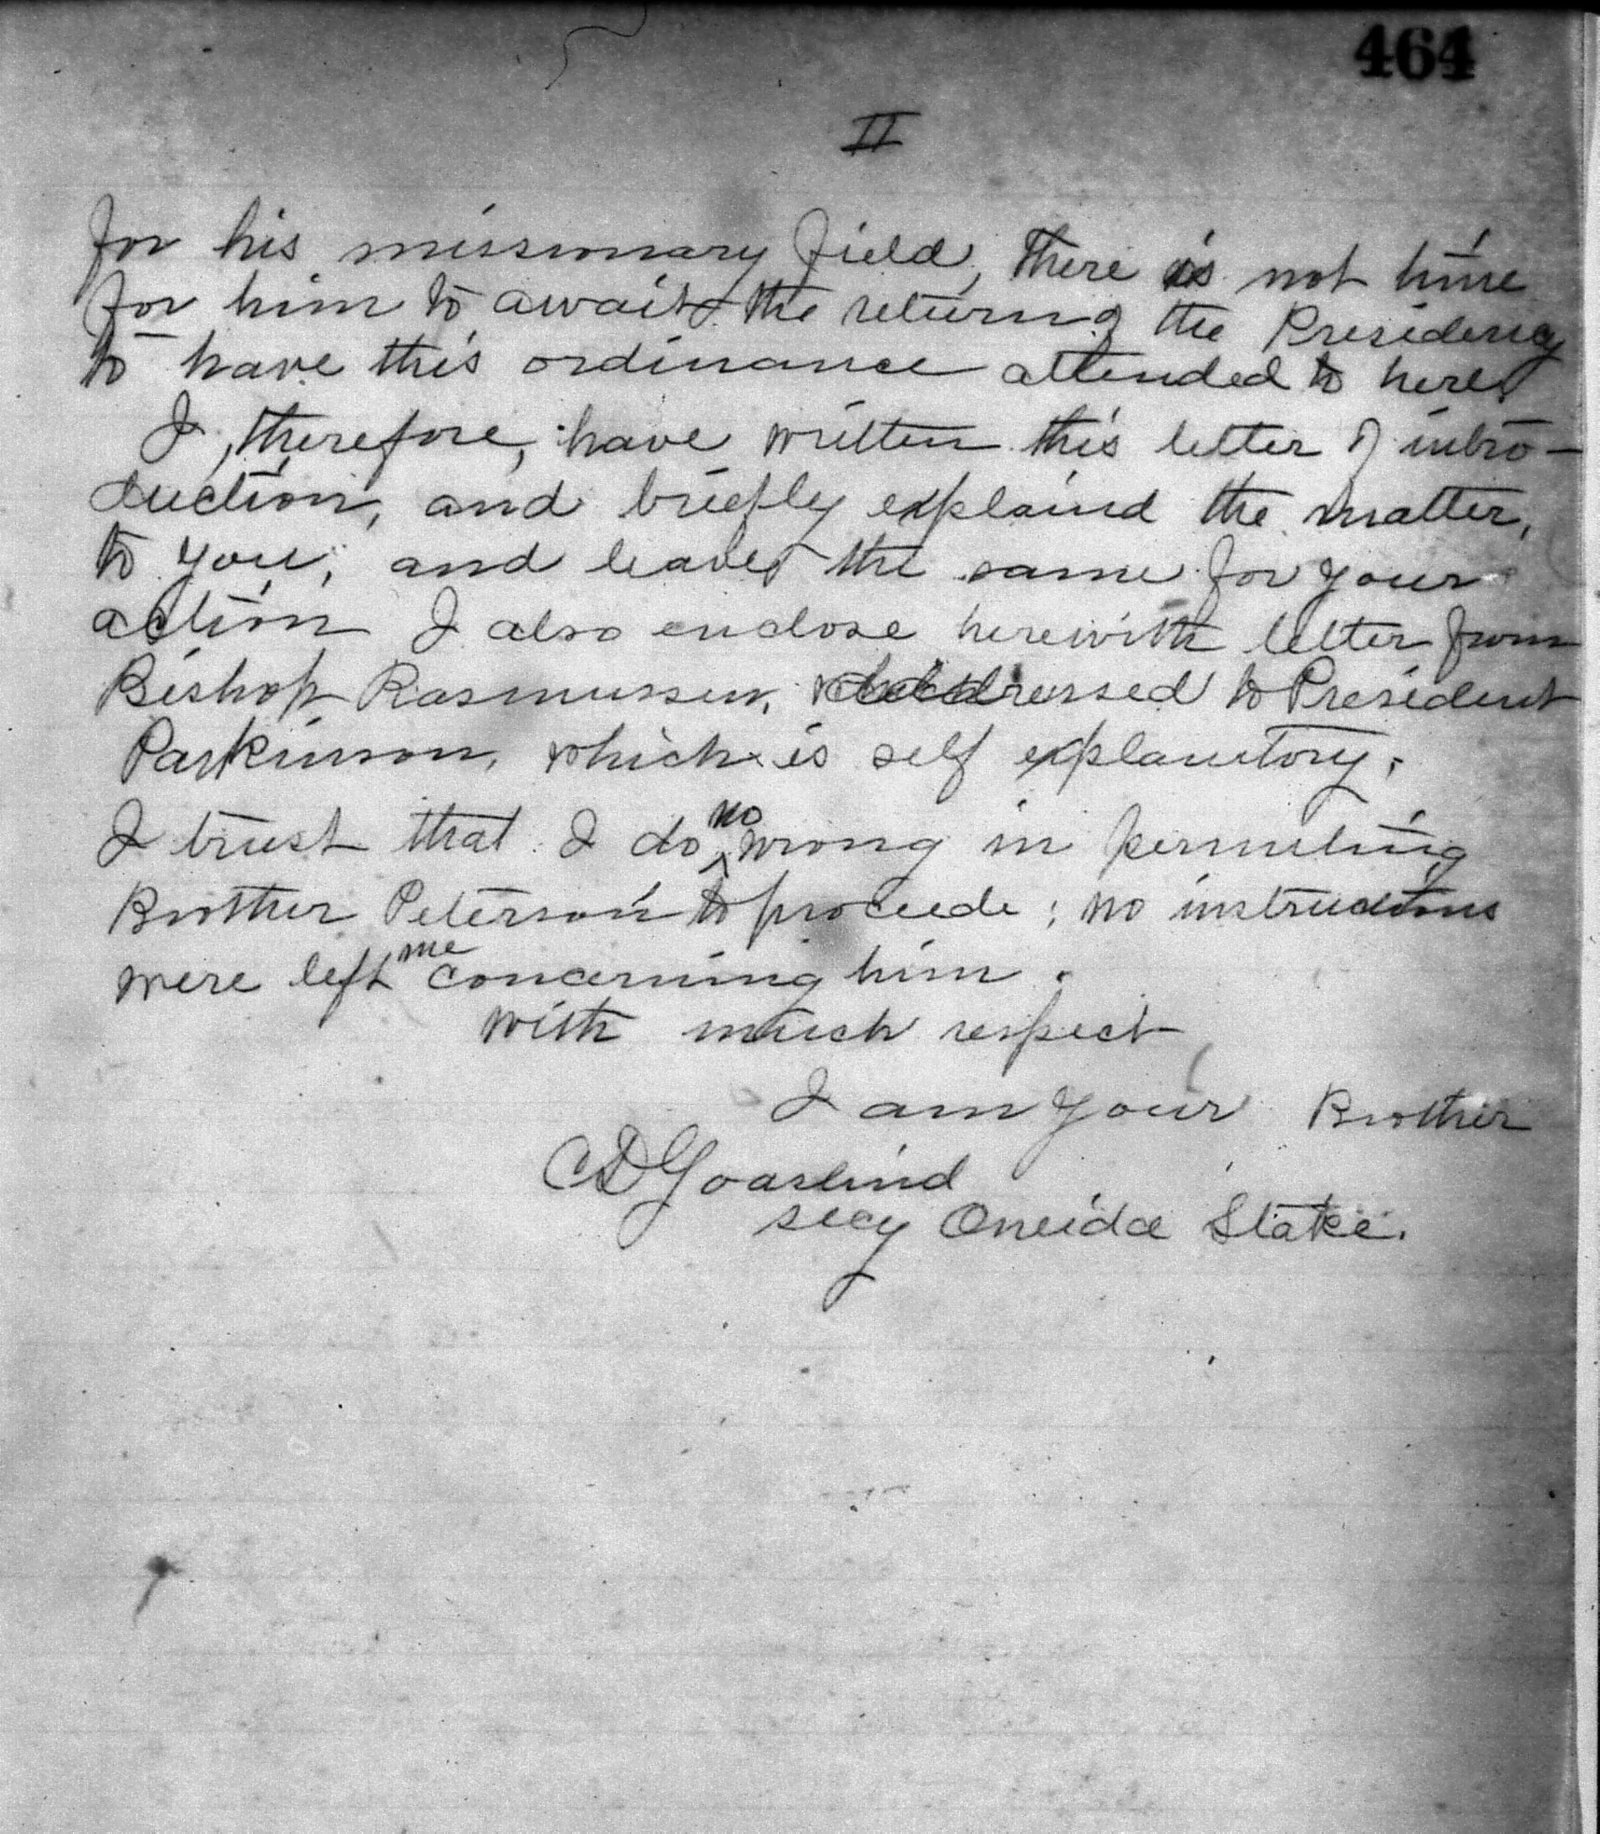 464
II
for his missionary field, there is not time
for him to await the return of the Presidency
to have this ordinance attended to here
I, therefore, have written this letter of intro-
duction, and briefly explaind the matter,
to you, and leave the same for your
action I also enclose herewith letter from
Bishop Rasmussen, addressed to President
Parkinson, which is self explanetory.
I trust that I do no wrong in permiting
Brother Peterson to proceede; no instructions
were left me concerning him.
With much respect
I am your Brother
C D Goaslind
secy Oneida Stake.